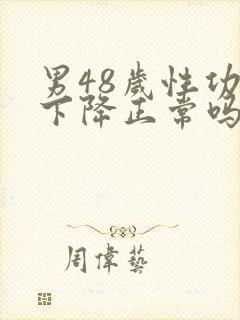 男48歲性功
下降正常嗎
周偉藝